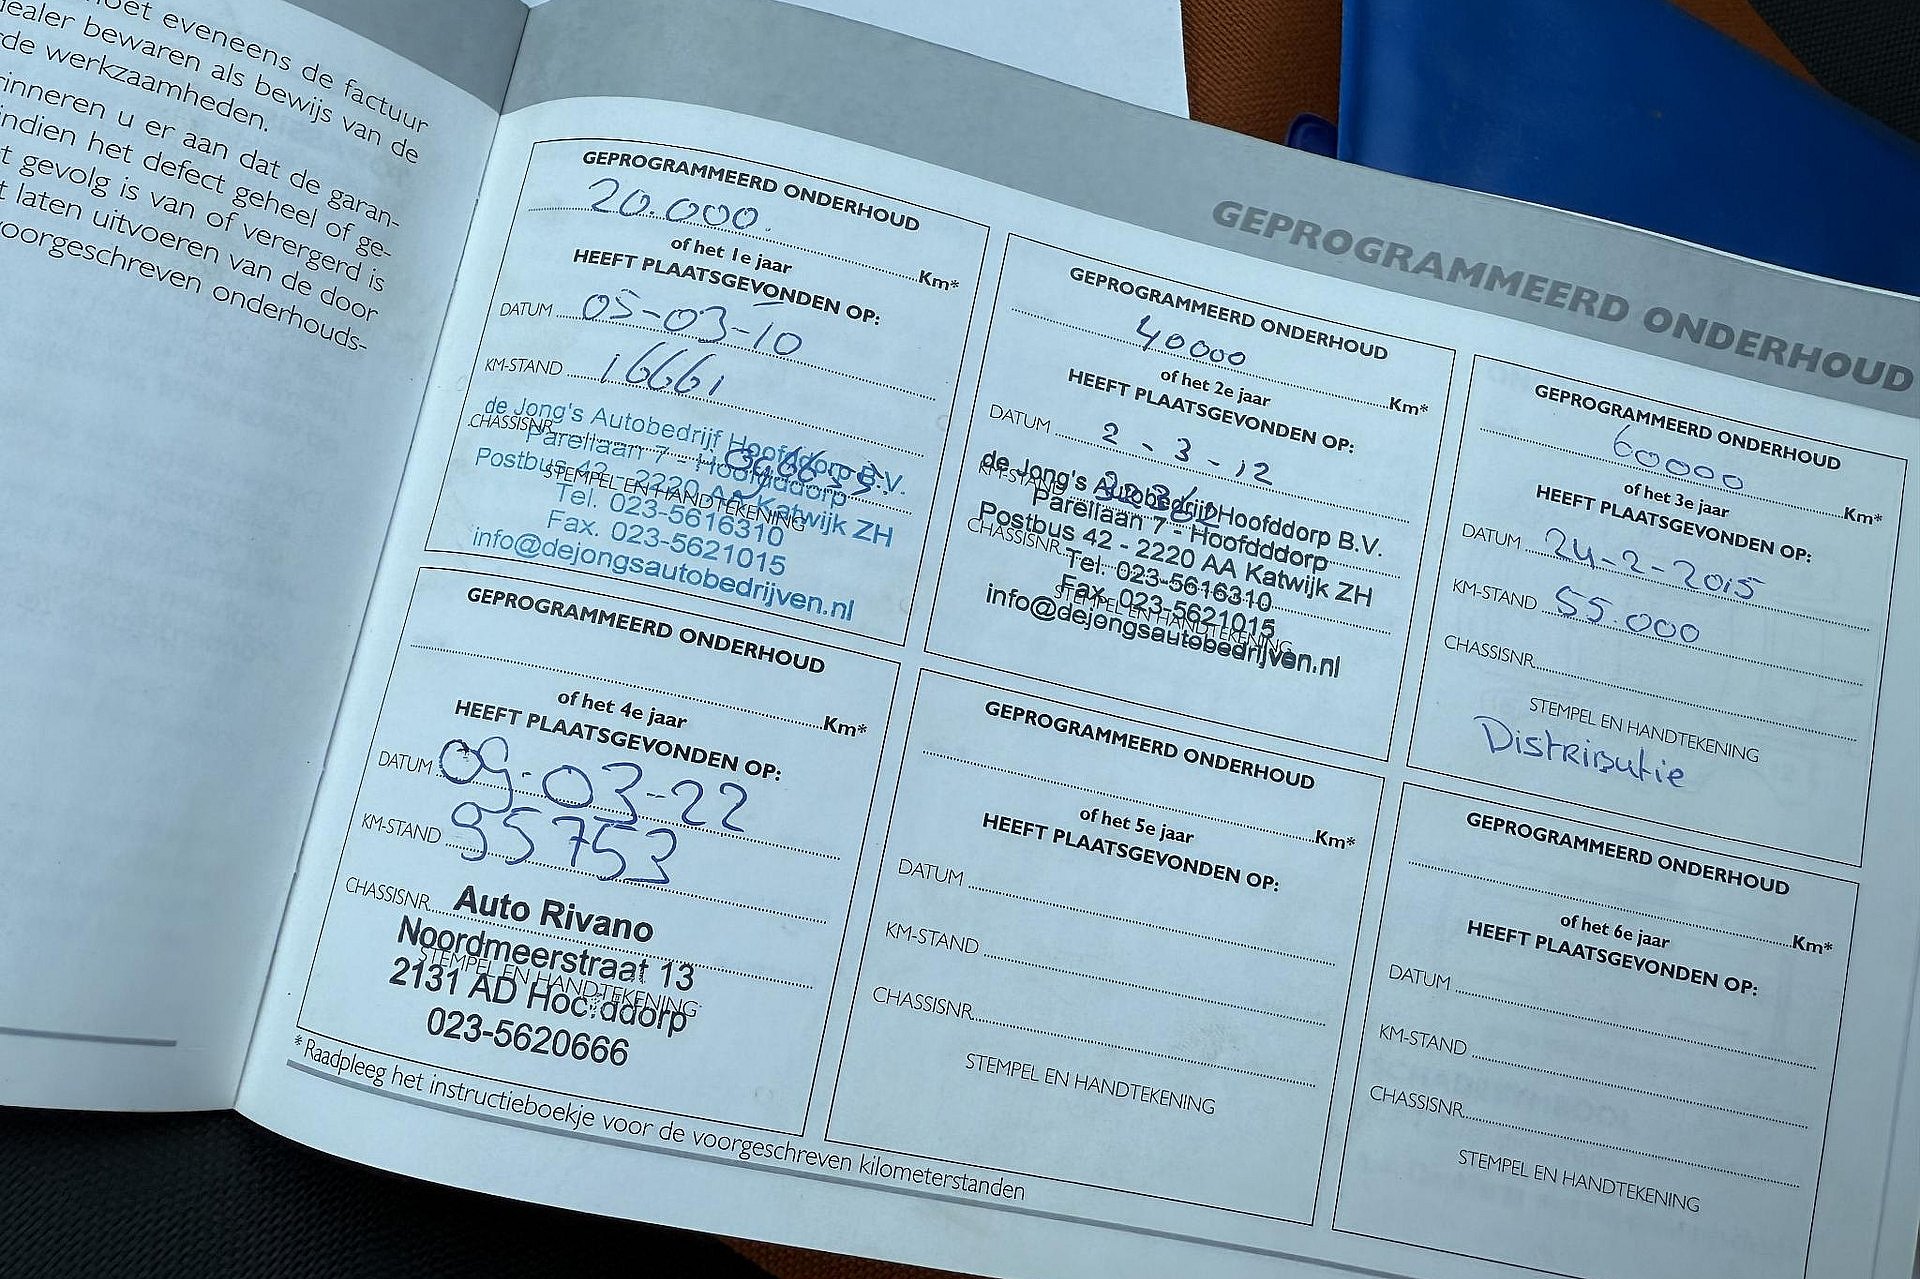 oet eveneens de factuur
ealer bewaren als bewijs van de
de werkzaamheden.
inneren u er aan dat de garan-
indien het defect geheel of ge-
t gevolg is van of verergerd is
t laten uitvoeren van de door
oorgeschreven onderhouds-
GEPROGRAMMEERD ONDERHOUD
GEPROGRAMMEERD ONDERHOUD
20.000.
Km*
of het 1e jaar
HEEFT PLAATSGEVONDEN OP:
DATUM 05-03-10
KM-STAND 16661
CHASSISNR.
de Jong's Autobedrijf Hoofddorp B.V.
Parellaan 7 - Hoofdddorp
Postbus 42 - 2220 AA Katwijk ZH
STEMPEL EN HANDTEKENING
Tel. 023-5616310
Fax. 023-5621015
info@dejongsautobedrijven.nl
GEPROGRAMMEERD ONDERHOUD
40000
Km*
of het 2e jaar
HEEFT PLAATSGEVONDEN OP:
DATUM 2-3-12
KM-STAND
de Jong's Autobedrijf Hoofddorp B.V.
Parellaan 7 - Hoofdddorp
CHASSISNR.
Postbus 42 - 2220 AA Katwijk ZH
Tel. 023-5616310
Fax. 023-5621015
STEMPEL EN HANDTEKENING
info@dejongsautobedrijven.nl
GEPROGRAMMEERD ONDERHOUD
60000
Km*
of het 3e jaar
HEEFT PLAATSGEVONDEN OP:
DATUM 24-2-2015
KM-STAND 55.000
CHASSISNR.
STEMPEL EN HANDTEKENING
Distributie
GEPROGRAMMEERD ONDERHOUD
Km*
of het 4e jaar
HEEFT PLAATSGEVONDEN OP:
DATUM 09-03-22
KM-STAND 95753
CHASSISNR.
Auto Rivano
Noordmeerstraat 13
STEMPEL EN HANDTEKENING
2131 AD Hoofddorp
023-5620666
GEPROGRAMMEERD ONDERHOUD
Km*
of het 5e jaar
HEEFT PLAATSGEVONDEN OP:
DATUM
KM-STAND
CHASSISNR.
STEMPEL EN HANDTEKENING
GEPROGRAMMEERD ONDERHOUD
Km*
of het 6e jaar
HEEFT PLAATSGEVONDEN OP:
DATUM
KM-STAND
CHASSISNR.
STEMPEL EN HANDTEKENING
* Raadpleeg het instructieboekje voor de voorgeschreven kilometerstanden